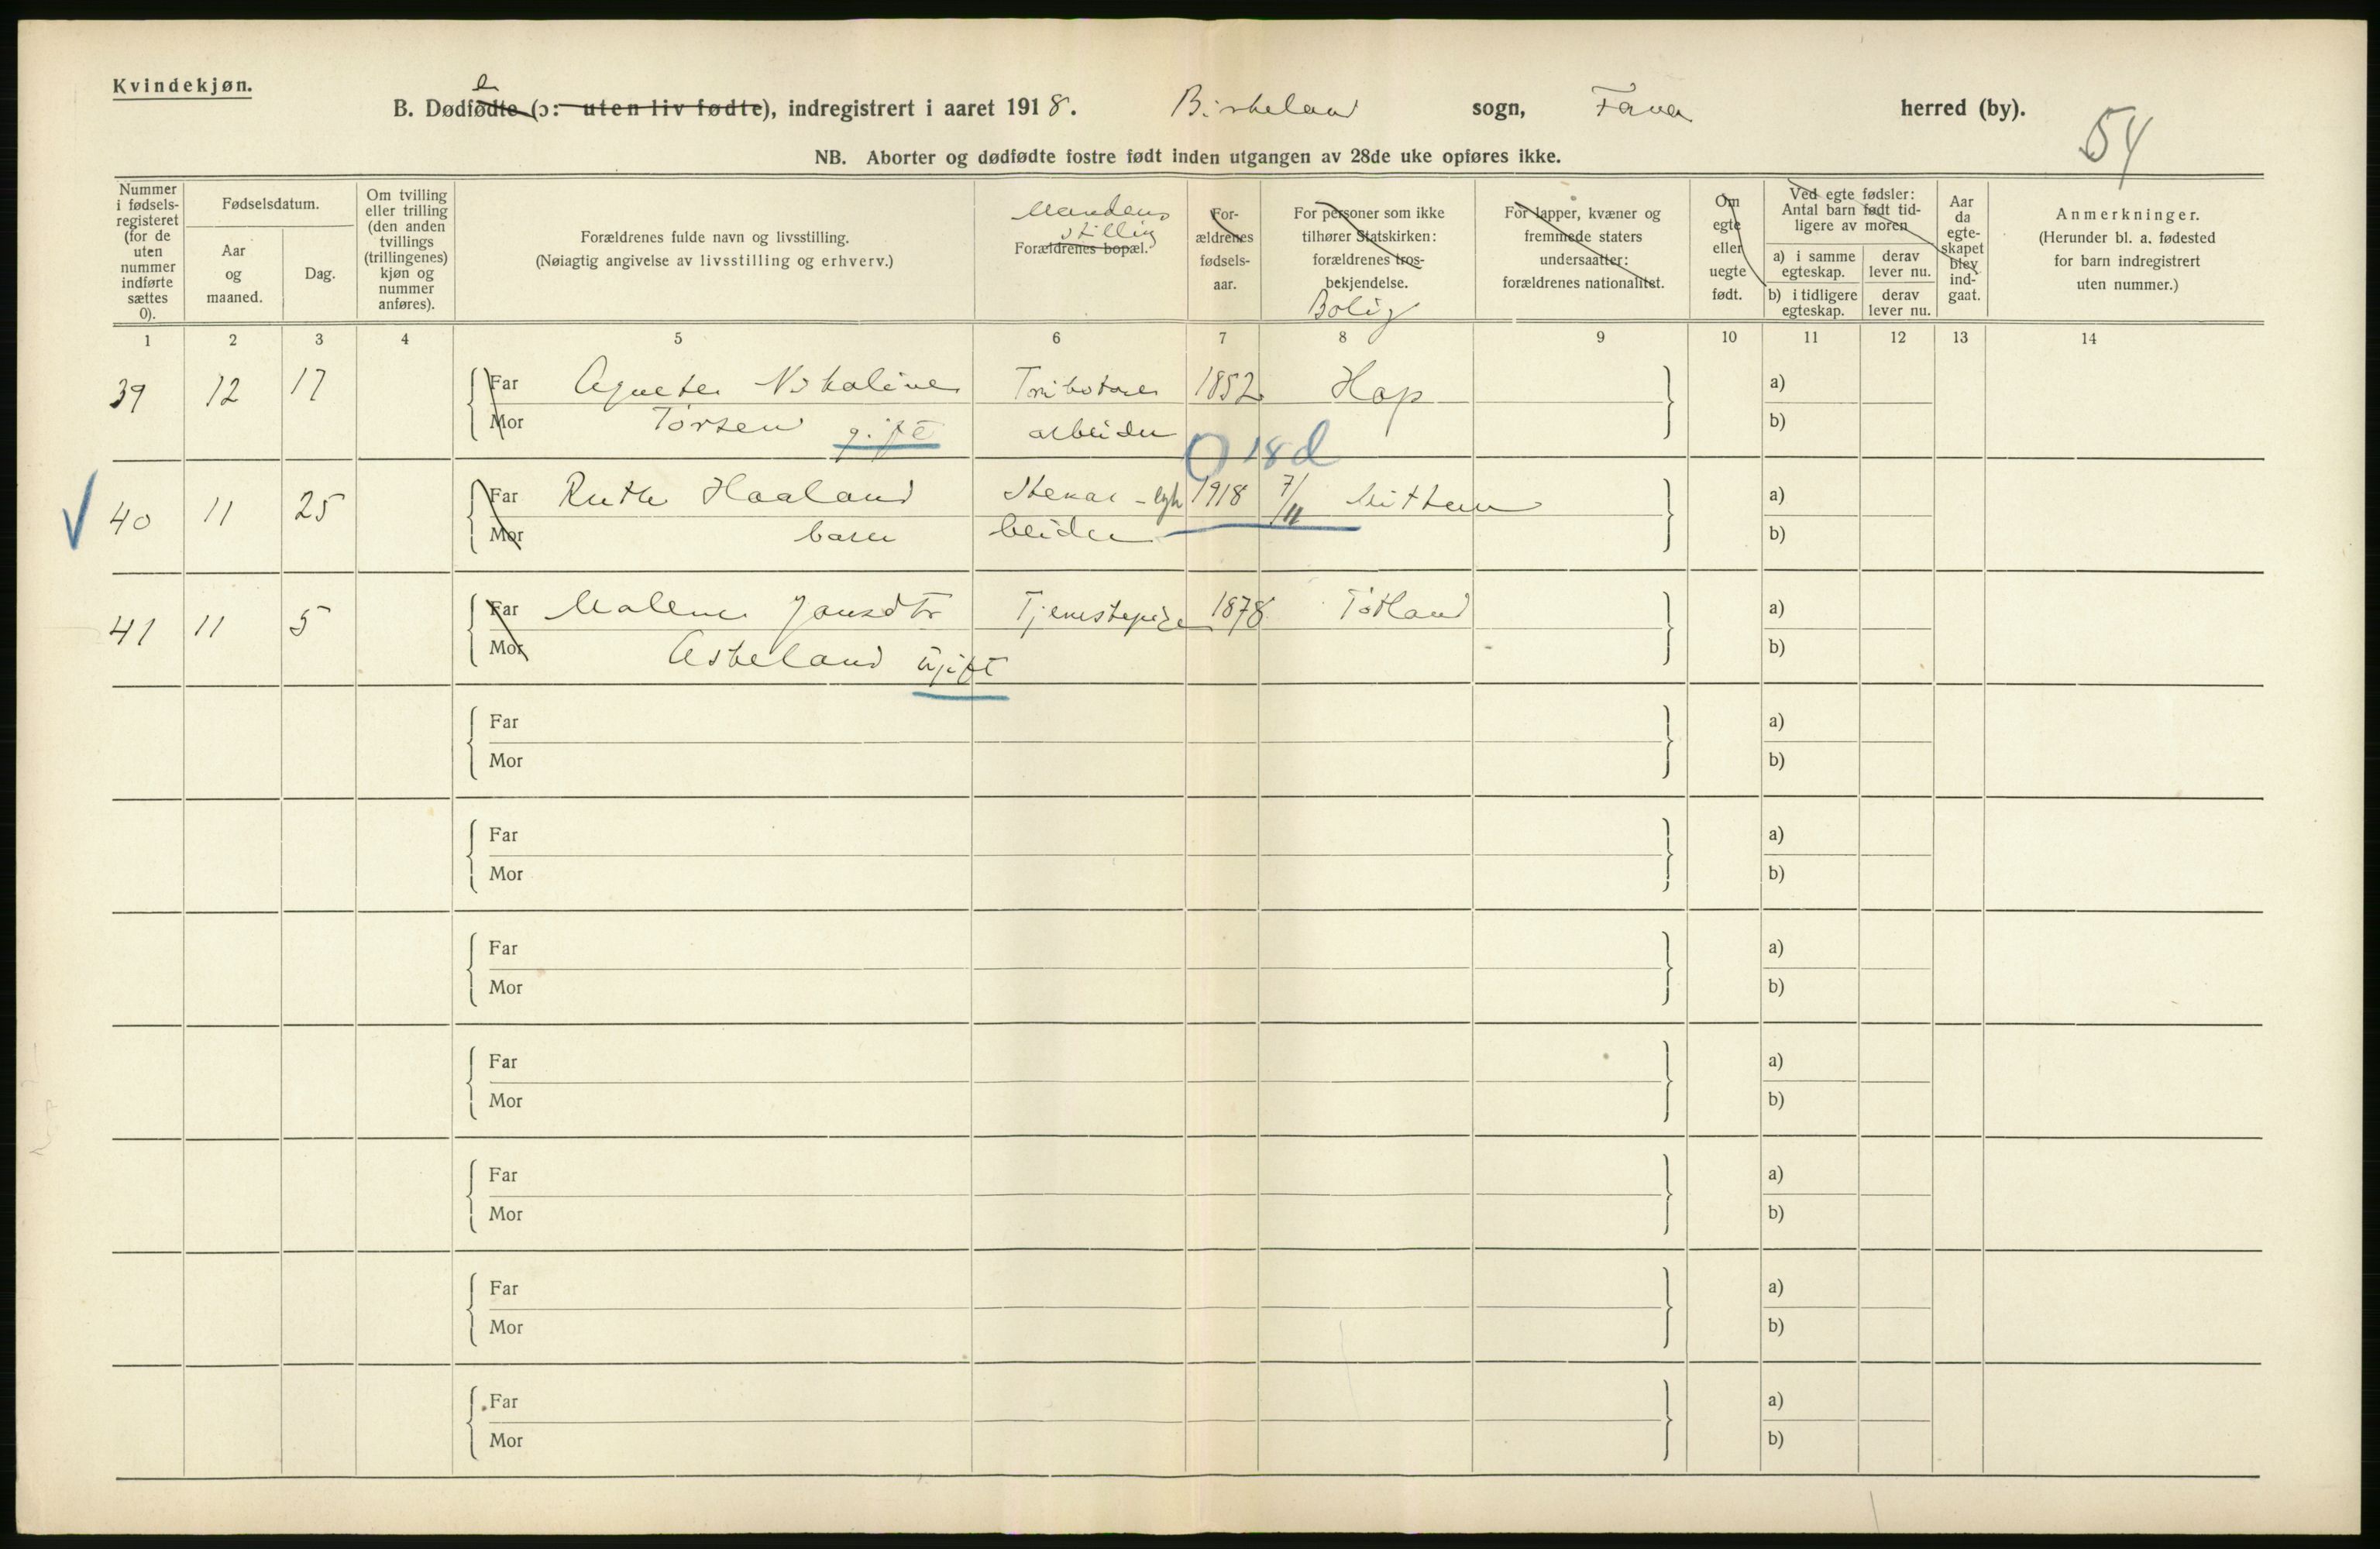 Kvindekjøn.
e
B. Dødfødte (ɔ: uten liv fødte), indregistrert i aaret 1918. Birkeland sogn, Fana herred (by).
54
NB. Aborter og dødfødte fostre født inden utgangen av 28de uke opføres ikke.
Nummer i fødsels-registeret (for de uten nummer indførte sættes 0).
Fødselsdatum.
Aar og maaned.
Dag.
Om tvilling eller trilling (den anden tvillings (trillingenes) kjøn og nummer anføres).
Forældrenes fulde navn og livsstilling.
(Nøiagtig angivelse av livsstilling og erhverv.)
Mandens stilling
Forældrenes bopæl.
For-ældrenes fødsels-aar.
For personer som ikke tilhører Statskirken: forældrenes tros-bekjendelse.
Bolig
For lapper, kvæner og fremmede staters undersaatter: forældrenes nationalitet.
Om egte eller uegte født.
Ved egte fødsler: Antal barn født tid-ligere av moren
a) i samme egteskap.
derav lever nu.
b) i tidligere egteskap.
derav lever nu.
Aar da egte-skapet blev ind-gaat.
Anmerkninger.
(Herunder bl. a. fødested for barn indregistrert uten nummer.)
1 2 3 4 5 6 7 8 9 10 11 12 13 14
39 12 17 Far Agnethe Nikoline 1852 Hop a)
Mor Torsen gift arbeider b)
0 18 d
40 11 25 Far Ruth Haaland 1918 7/11 a)
Mor barn beider b)
41 11 5 Far Malene Jansdtr Tjenestepige 1878 Totland a)
Mor Askeland ugift b)
Far a)
Mor b)
Far a)
Mor b)
Far a)
Mor b)
Far a)
Mor b)
Far a)
Mor b)
Far a)
Mor b)
Far a)
Mor b)